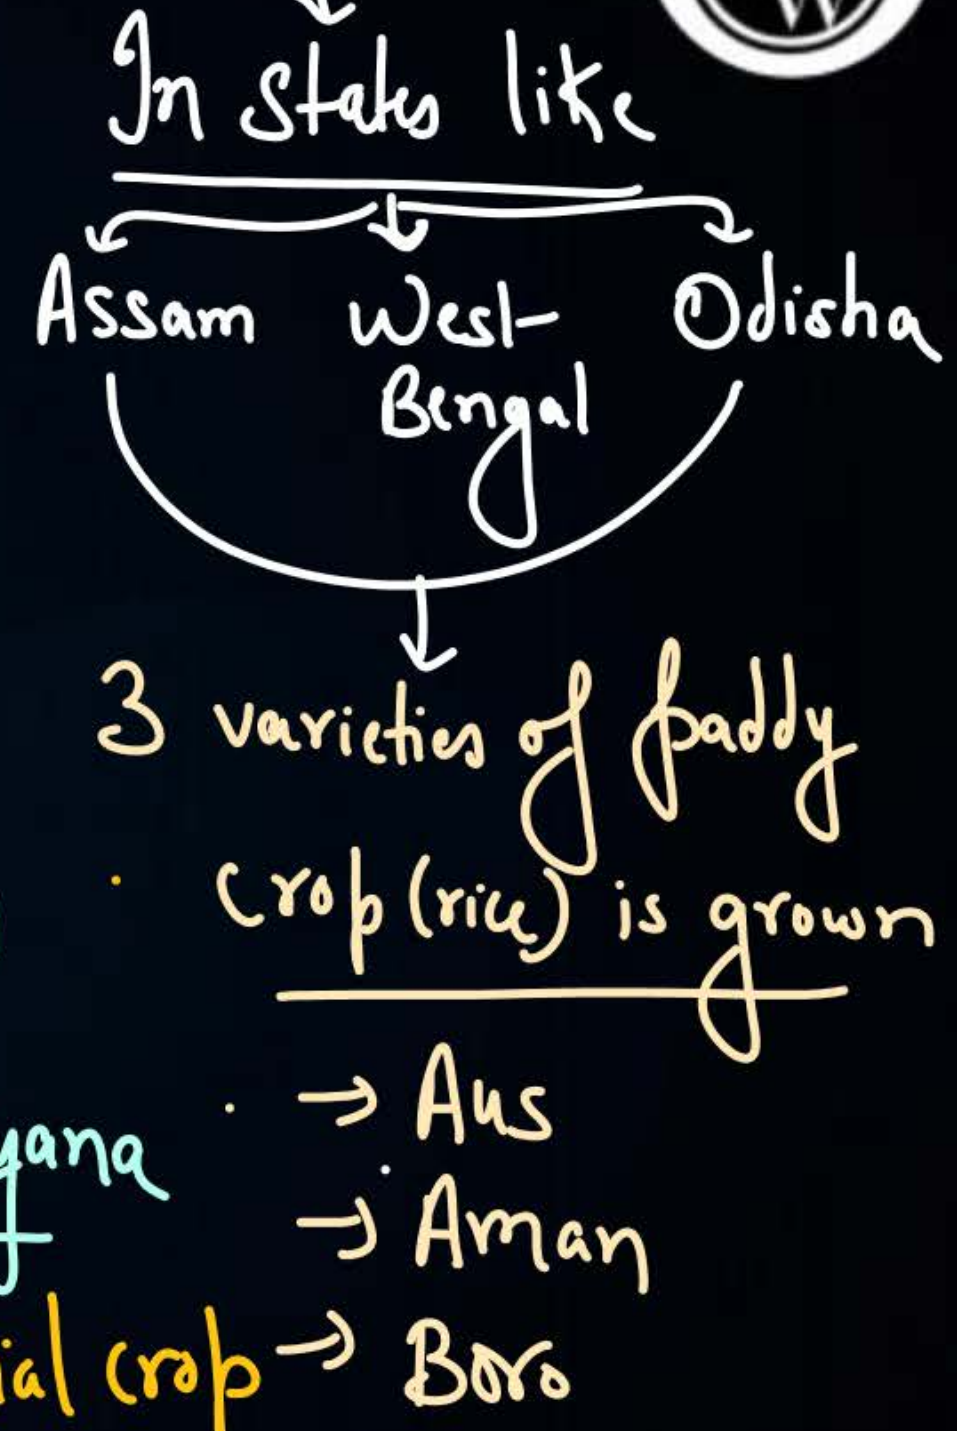 In states like
Assam West-
Bengal
Odisha
3 varieties of paddy
crop (rice) is grown
→ Aus
→ Aman
→ Boro
crop
W